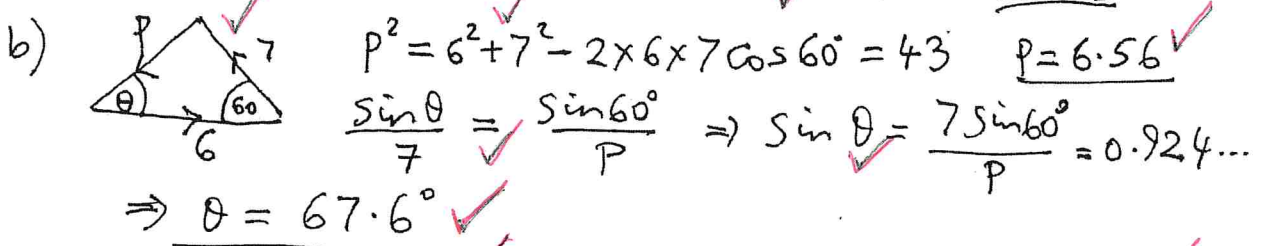 b) P 7 P² = 6² + 7² - 2×6×7 Cos 60° = 43 P = 6.56
θ 60 6 Sin θ / 7 = Sin 60° / P ⇒ Sin θ = 7 Sin 60° / P = 0.924...
⇒ θ = 67.6°